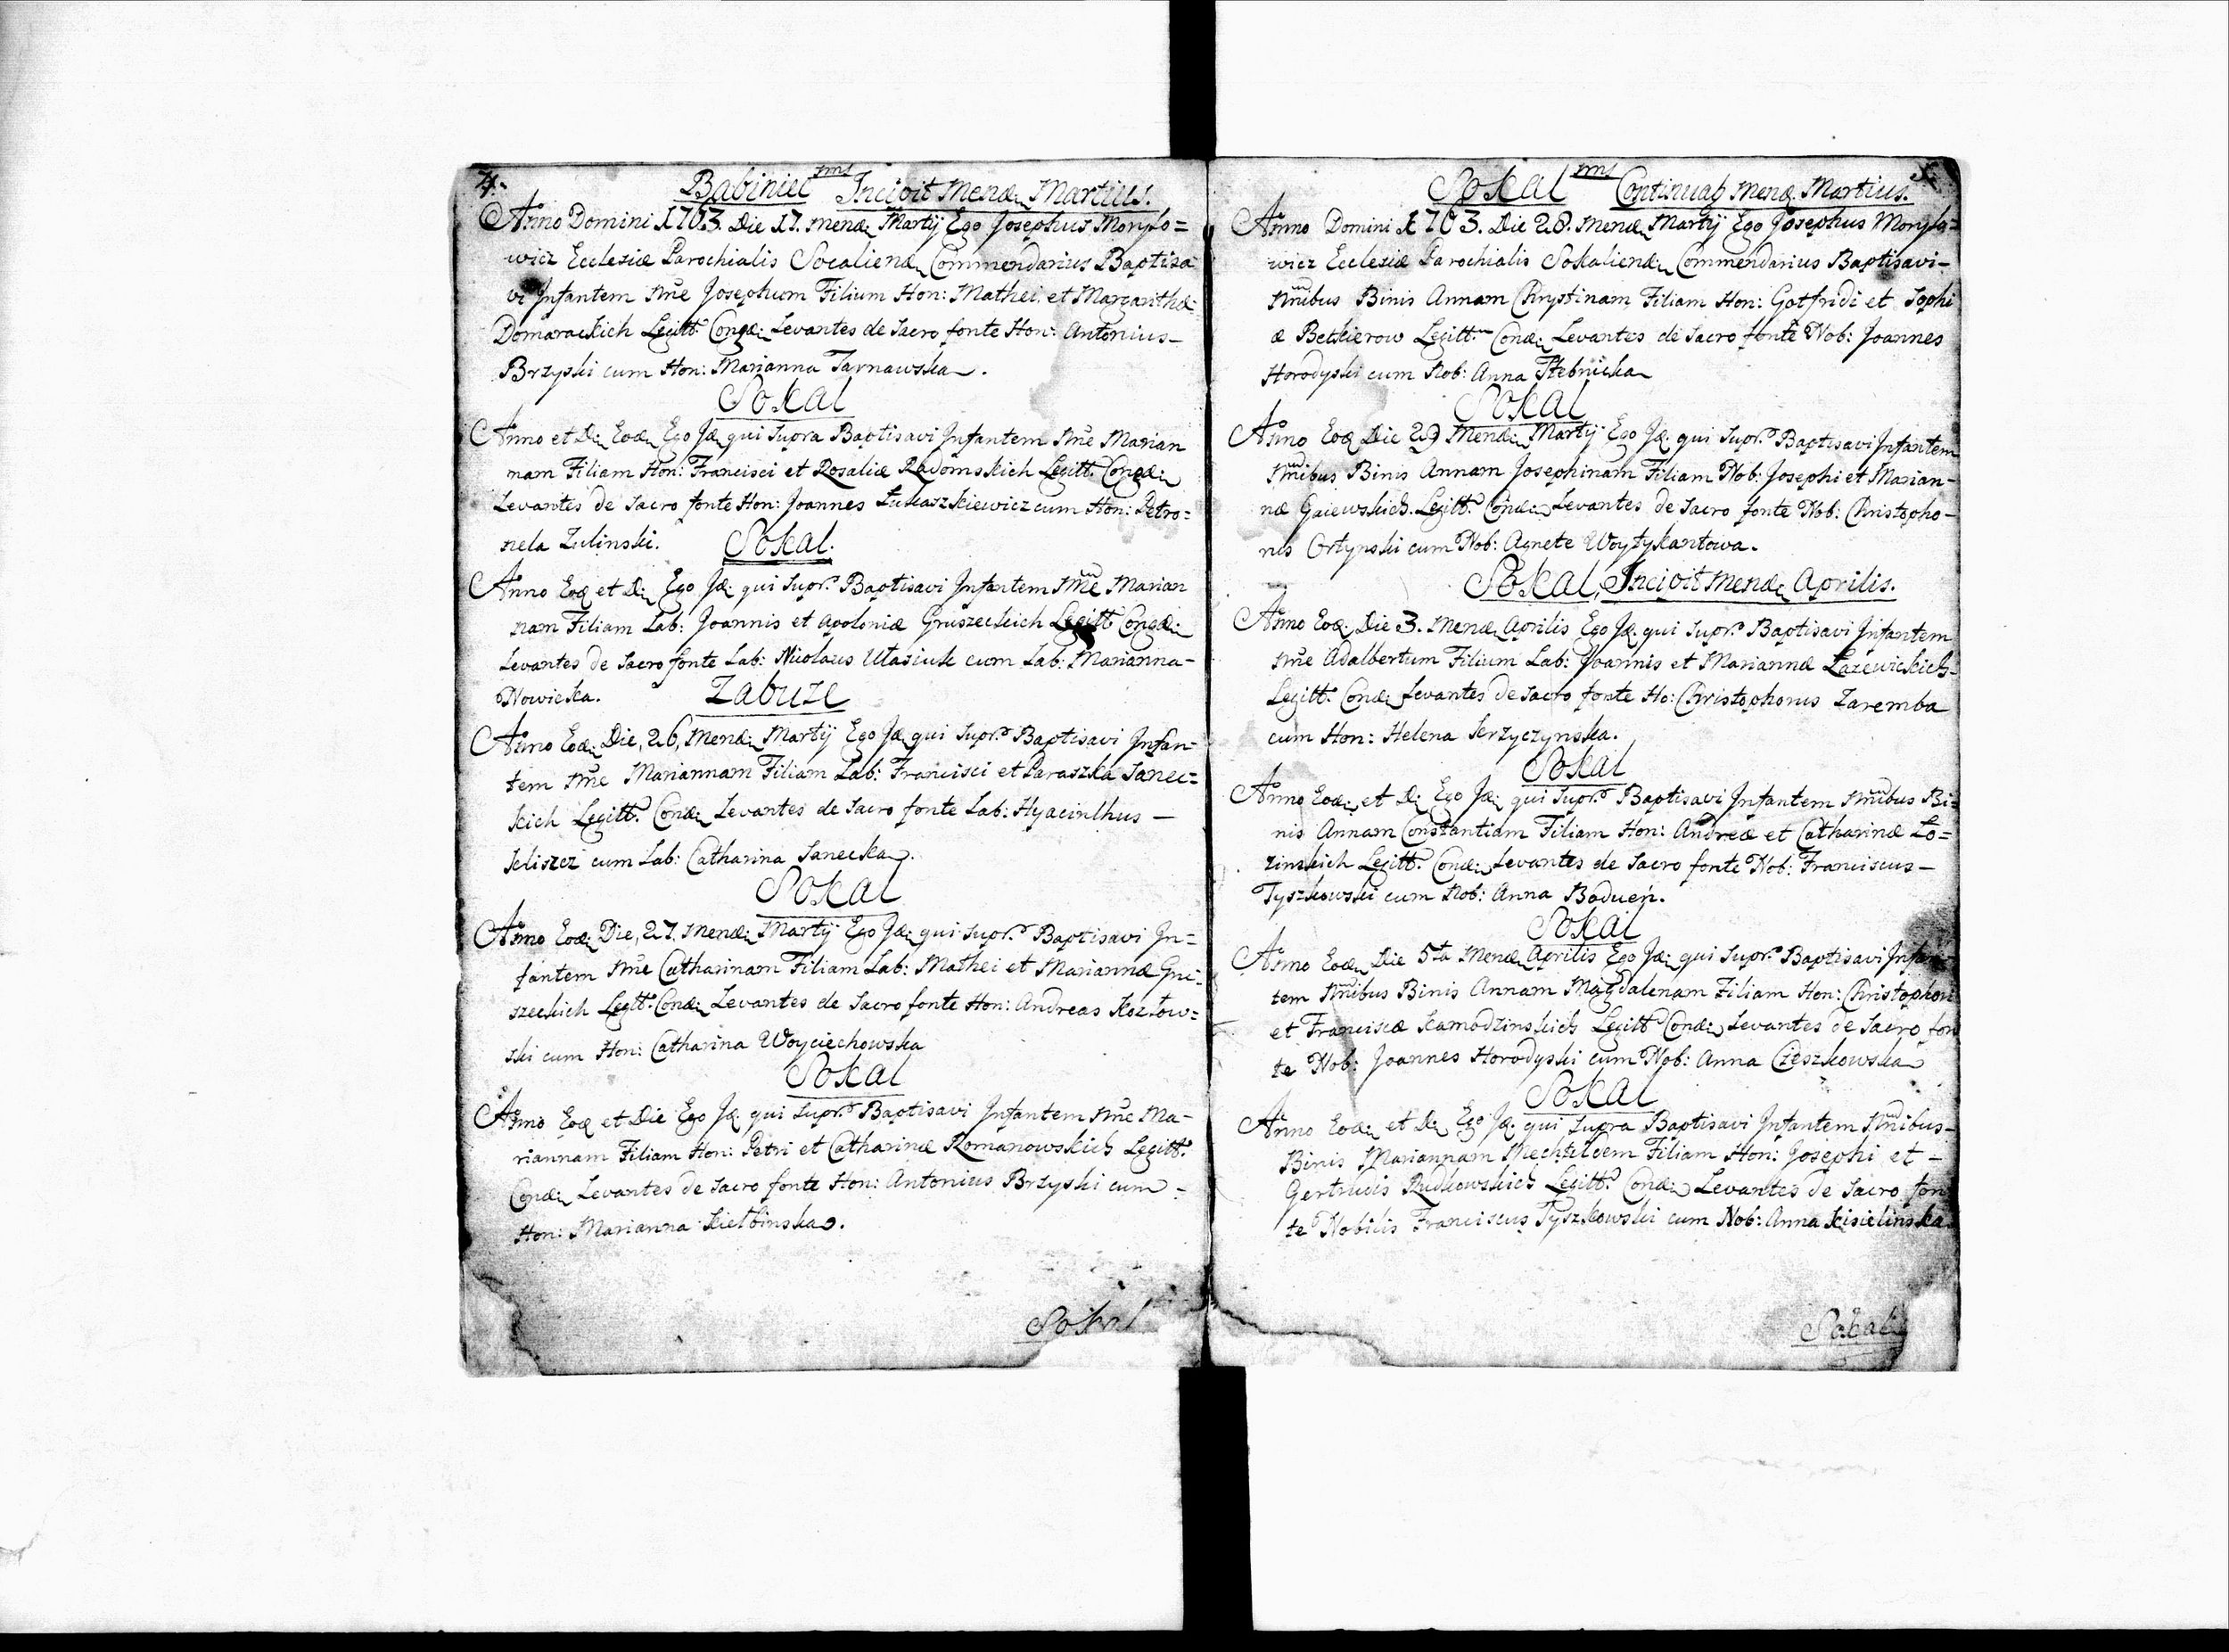 4.
Babiniec Incipit Mensæ Martius.
Anno Domini 1703. Die 17. Mensæ Martij Ego Josephus Morylo=
wicz Ecclesiæ Parochialis Socaliensæ Commendarius Baptisa
vi Infantem Nne Josephum Filium Hon: Mathei et Margarithæ
Domarackich Legitt: Congæ: Levantes de Sacro fonte Hon: Antonius
Brzyski cum Hon: Marianna Tarnawska.
Sokal
Anno et D: Eoæ Ego Jæ qui Supra Baptisavi Infantem Nne Marian
nam Filiam Hon: Francisci et Rosaliæ Radomskich Legitt: Congæ:
Levantes de Sacro fonte Hon: Joannes Łukaszkiewicz cum Hon: Petro=
nela Zulinski.
Sokal.
Anno Eoæ et D: Ego Jæ qui Supr: Baptisavi Infantem Nne Marian
nam Filiam Lab: Joannis et Apoloniæ Gruszeckich Legitt Congæ:
Levantes de Sacro fonte Lab: Nicolaus Utasiuk cum Lab: Marianna-
Nowicka.
Zabuże
Anno Eoæ: Die, 26, Mensæ: Martij Ego Jæ qui Supr: Baptisavi Infan=
tem Nne Mariannam Filiam Lab: Francisci et Paraszka Sanec=
kich Legitt: Conæ: Levantes de Sacro fonte Lab: Hyacinthus —
Seliszcz cum Lab: Catharina Sanecka.
Sokal
Anno Eoæ: Die, 27, Mensæ: Martij Ego Jæ: qui Supr: Baptisavi In=
fantem Nne Catharinam Filiam Lab: Mathei et Mariannæ Gru=
szeckich Legitt: Conæ: Levantes de Sacro fonte Hon: Andreas Kozłow=
ski cum Hon: Catharina Woyciechowska
Sokal
Anno Eoæ et Die Ego Jæ qui Supr: Baptisavi Infantem Nne Ma-
riannam Filiam Hon: Petri et Catharinæ Romanowskich Legitt:
Conæ: Levantes de Sacro fonte Hon: Antonius Brzyski cum -
Hon: Marianna Kiełbinska.
Sokal
Sokal Continuat Mensæ Martius.
Anno Domini 1703. Die 28. Mensæ Martij Ego Josephus Morylo=
wicz Ecclesiæ Parochialis Sokaliensæ Commendarius Baptisavi-
Nnibus Binis Annam Chrystinam Filiam Hon: Gotfridi et Sophi
æ Betkierow Legitt: Conæ: Levantes de Sacro fonte Nob: Joannes
Horodyski cum Nob: Anna Stebnicka
Sokal
Anno Eoæ Die 29 Mensæ: Martij Ego Jæ: qui Supr: Baptisavi Infantem
Nnibus Binis Annam Josephinam Filiam Nob: Josephi et Marian-
næ Gaiewskich. Legitt: Conæ: Levantes de Sacro fonte Nob: Christopho-
rus Ortynski cum Nob: Agnete Woytykantowa.
Sokal, Incipit Mensæ Aprilis.
Anno Eoæ. Die 3. Mensæ Aprilis Ego Jæ. qui Supr: Baptisavi Infantem
Nne Adalbertum Filium Lab: Joannis et Mariannæ Łazewickich-
Legitt: Conæ: Levantes de Sacro fonte Ho: Christophorus Zaremba
cum Hon: Helena Serzyczynska.
Sokal
Anno Eoæ: et D: Ego Jæ: qui Supr: Baptisavi Infantem Nnibus Bi=
nis Annam Constantiam Filiam Hon: Andreæ et Catharinæ Ło=
zinskich Legitt: Conæ: Levantes de Sacro fonte Nob: Franciscus —
Tyszkowski cum Nob: Anna Boduen.
Sokal
Anno Eoæ Die 5ta Mensæ Aprilis Ego Jæ: qui Supr: Baptisavi Infan
tem Nnibus Binis Annam Magdalenam Filiam Hon: Christophori
et Franciscæ Kamodzinskich Legitt: Conæ: Levantes de Sacro fon
te Nob: Joannes Horodyski cum Nob: Anna Cieszkowska
Sokal
Anno Eoæ: et D: Ego Jæ: qui Supra Baptisavi Infantem Nnibus-
Binis Mariannam Mechtildem Filiam Hon: Josephi et -
Gertrudis Rudkowskich Legitt: Conæ: Levantes de Sacro fon
te Nobilis Franciscus Tyszkowski cum Nob: Anna Kisielinska
Sokal